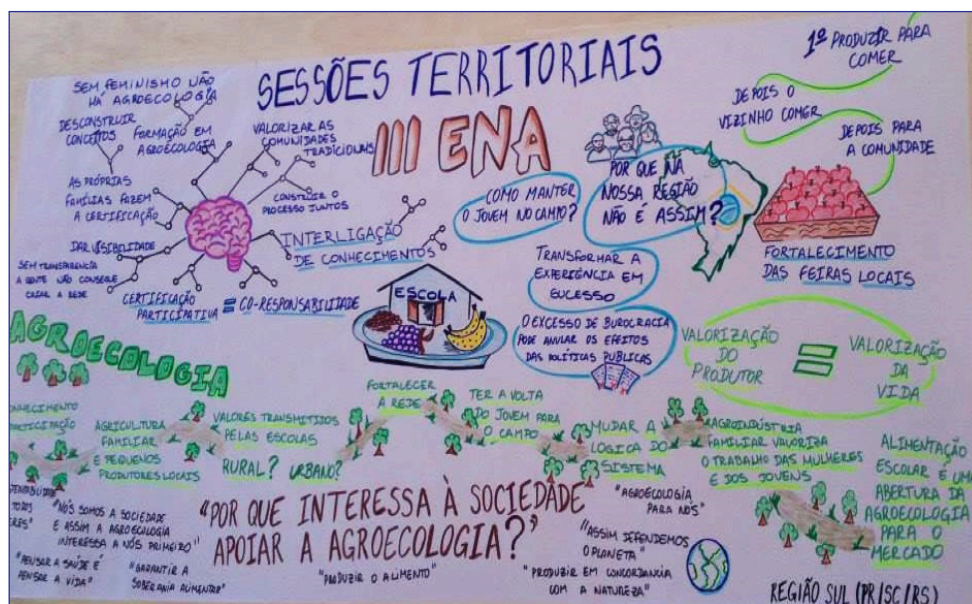 SESSÕES TERRITORIAIS
III ENA
SEM FEMINISMO NÃO
HÁ AGROECOLOGIA
DESCONSTRUIR
CONCEITOS
FORMAÇÃO EM
AGROECOLOGIA
VALORIZAR AS
COMUNIDADES
TRADICIONAIS
AS PRÓPRIAS
FAMÍLIAS FAZEM
A CERTIFICAÇÃO
CONSTRUIR O
PROCESSO JUNTOS
DAR VISIBILIDADE
SEM TRANSPARÊNCIA
A GENTE NÃO CONSEGUE
CRIAR A REDE
INTERLIGAÇÃO
DE CONHECIMENTOS
CERTIFICAÇÃO
PARTICIPATIVA = CO-RESPONSABILIDADE
ESCOLA
COMO MANTER
O JOVEM NO CAMPO?
POR QUE NA
NOSSA REGIÃO
NÃO É ASSIM?
TRANSFORMAR A
EXPERIÊNCIA EM
SUCESSO
O EXCESSO DE BUROCRACIA
PODE ANULAR OS EFEITOS
DAS POLÍTICAS PÚBLICAS
1º PRODUZIR PARA
COMER
DEPOIS O
VIZINHO COMER
DEPOIS PARA
A COMUNIDADE
FORTALECIMENTO
DAS FEIRAS LOCAIS
VALORIZAÇÃO
DO
PRODUTOR
=
VALORIZAÇÃO
DA
VIDA
AGROECOLOGIA
AGRICULTURA
FAMILIAR
E PEQUENOS
PRODUTORES LOCAIS
VALORES TRANSMITIDOS
PELAS ESCOLAS
RURAL? URBANO?
FORTALECER
A REDE
TER A VOLTA
DO JOVEM PARA
O CAMPO
MUDAR A
LOGICA DO
SISTEMA
AGROINDÚSTRIA
FAMILIAR VALORIZA
O TRABALHO DAS MULHERES
E DOS JOVENS
ALIMENTAÇÃO
ESCOLAR É UMA
ABERTURA DA
AGROECOLOGIA
PARA O
MERCADO
"NÓS SOMOS A SOCIEDADE
E ASSIM A AGROECOLOGIA
INTERESSA A NÓS PRIMEIRO"
"PENSAR A SAÚDE É
PENSAR A VIDA"
"GARANTIR A
SOBERANIA ALIMENTAR"
"POR QUE INTERESSA À SOCIEDADE
APOIAR A AGROECOLOGIA?"
"PRODUZIR O ALIMENTO"
"AGROECOLOGIA
PARA NÓS"
"ASSIM DEFENDEMOS
O PLANETA"
"PRODUZIR EM CONCORDANCIA
COM A NATUREZA"
REGIÃO SUL (PR/SC/RS)